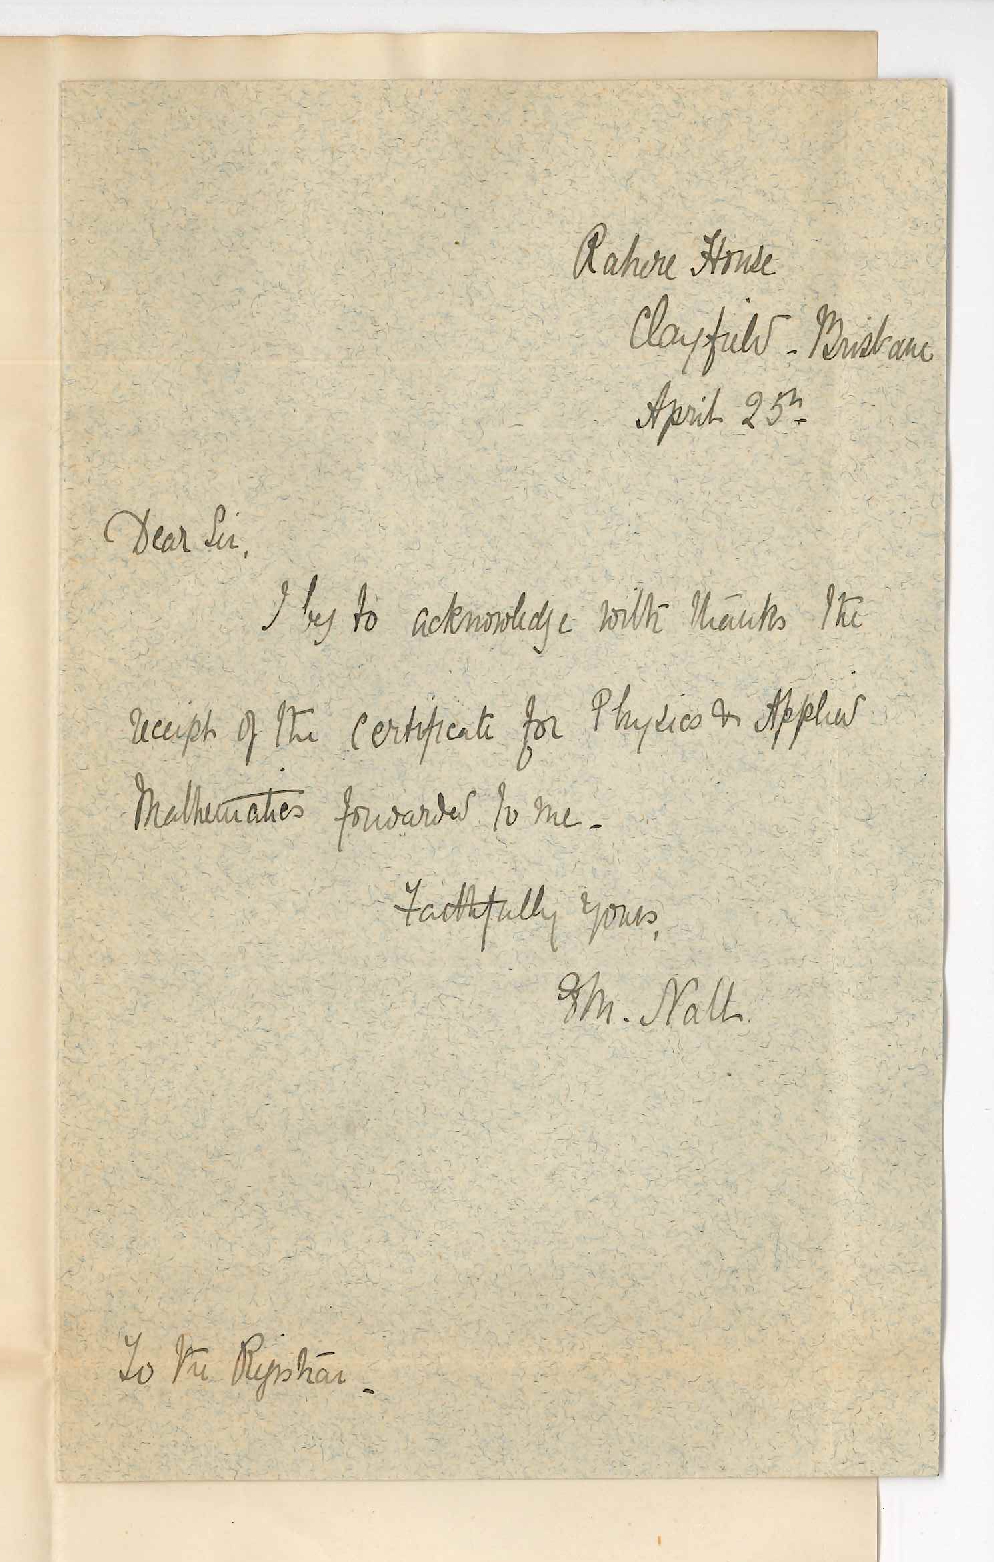 Rahere House
Clayfield - Brisbane
April 25th
Dear Sir,
I beg to acknowledge with thanks the
receipt of the certificate for Physics & Applied
Mathematics forwarded to me -
Faithfully yours,
M. Nall.
To the Registrar -